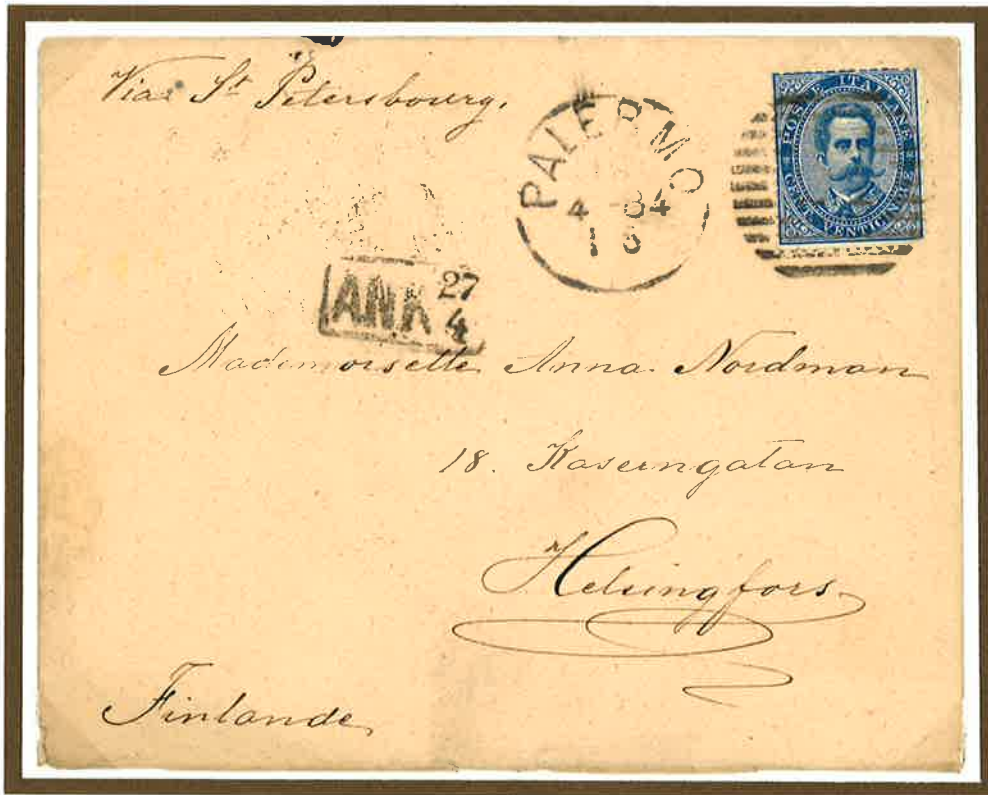 Via St Petersbourg.
PALERMO
4 84
POSTE ITALIANE
CENT. VENTICINQUE
ANK 27
4
Mademoiselle Anna Nordman
18. Kaserngatan
Helsingfors.
Finlande